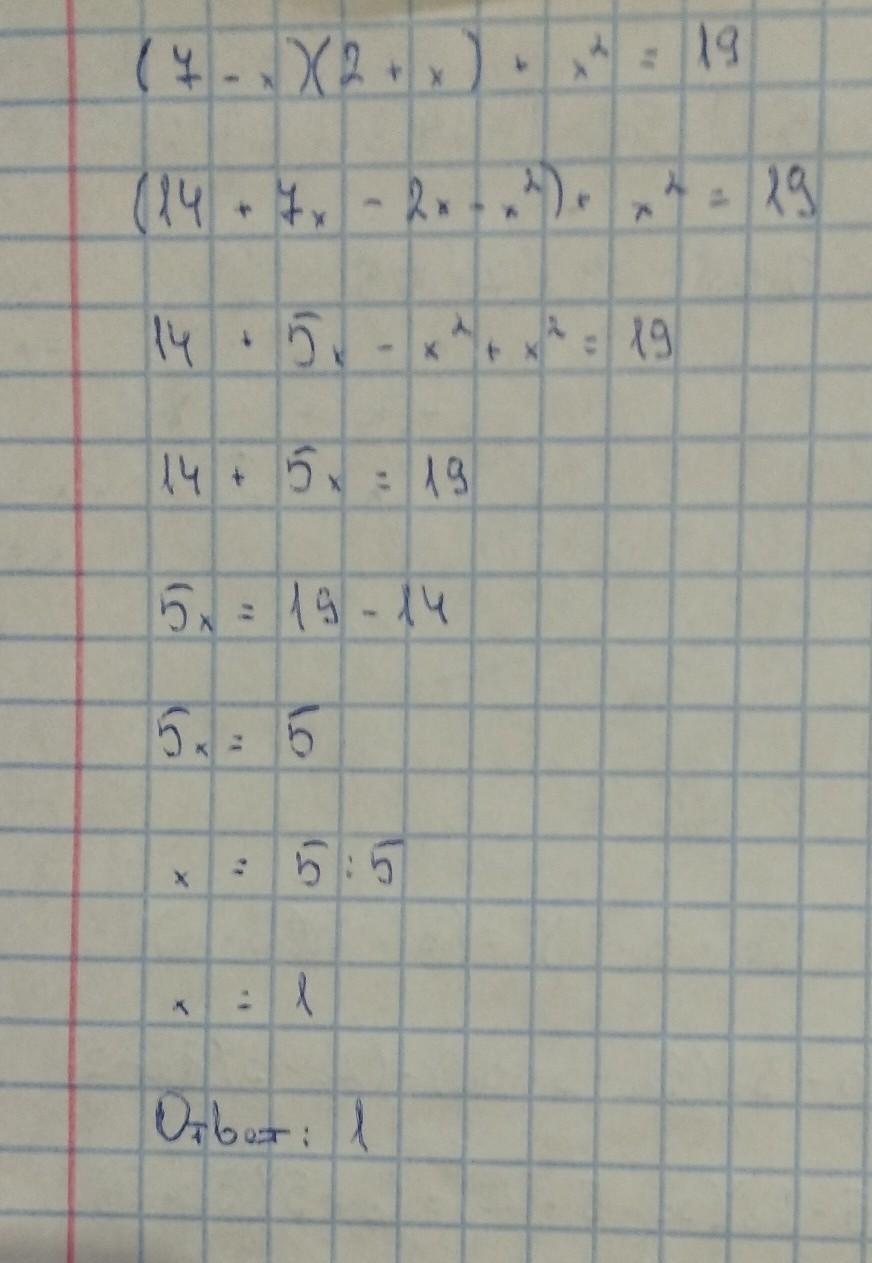 (7 - x)(2 + x) + x² = 19
(14 + 7x - 2x - x²) + x² = 19
14 + 5x - x² + x² = 19
14 + 5x = 19
5x = 19 - 14
5x = 5
x = 5 : 5
x = 1
Ответ: 1